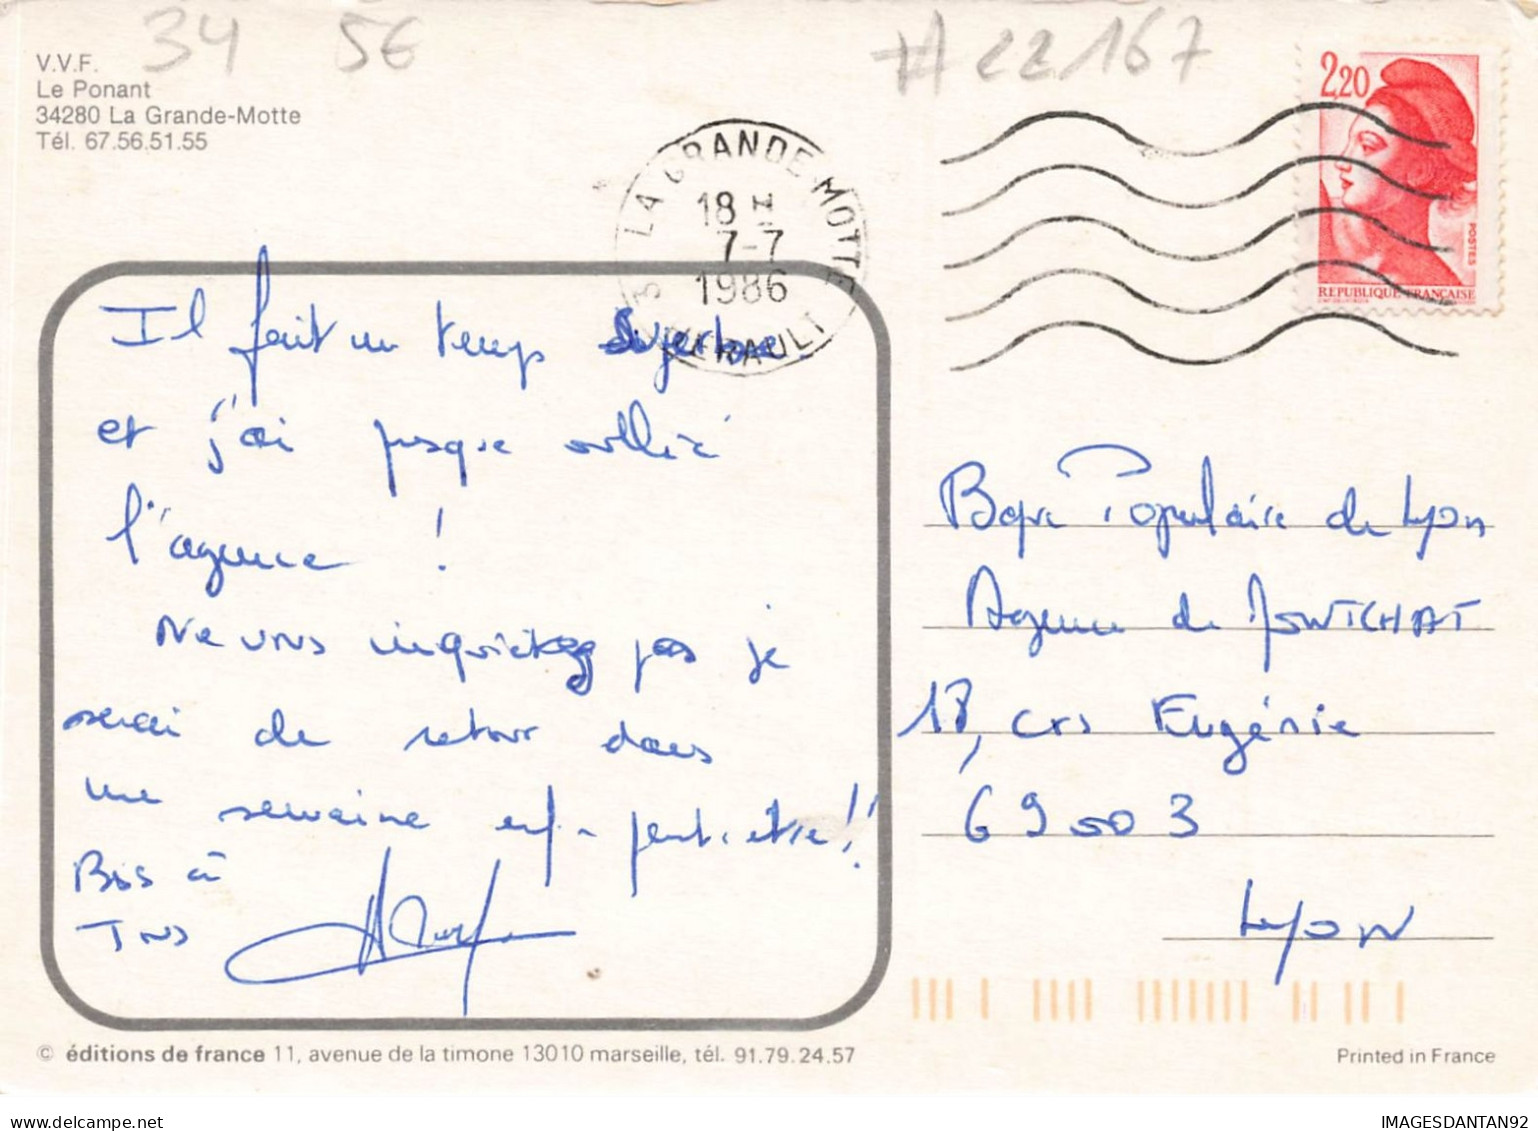 34 5€
#A22167
V.V.F.
Le Ponant
34280 La Grande-Motte
Tél. 67.56.51.55
LA GRANDE-MOTTE
18 H
7-7
1986
HERAULT
2,20
POSTES
REPUBLIQUE FRANÇAISE
Il fait un temps Superbe
et j'ai jusque oublié
l'agence !
Ne vous inquietez pas je
serai de retour dans
une semaine enfin peut-etre !!
Bss à
Tous
Bque Populaire de Lyon
Agence de MONTCHAT
18, crs Eugénie
69003
Lyon
© éditions de france 11, avenue de la timone 13010 marseille, tél. 91.79.24.57
Printed in France
IMAGESDANTAN92